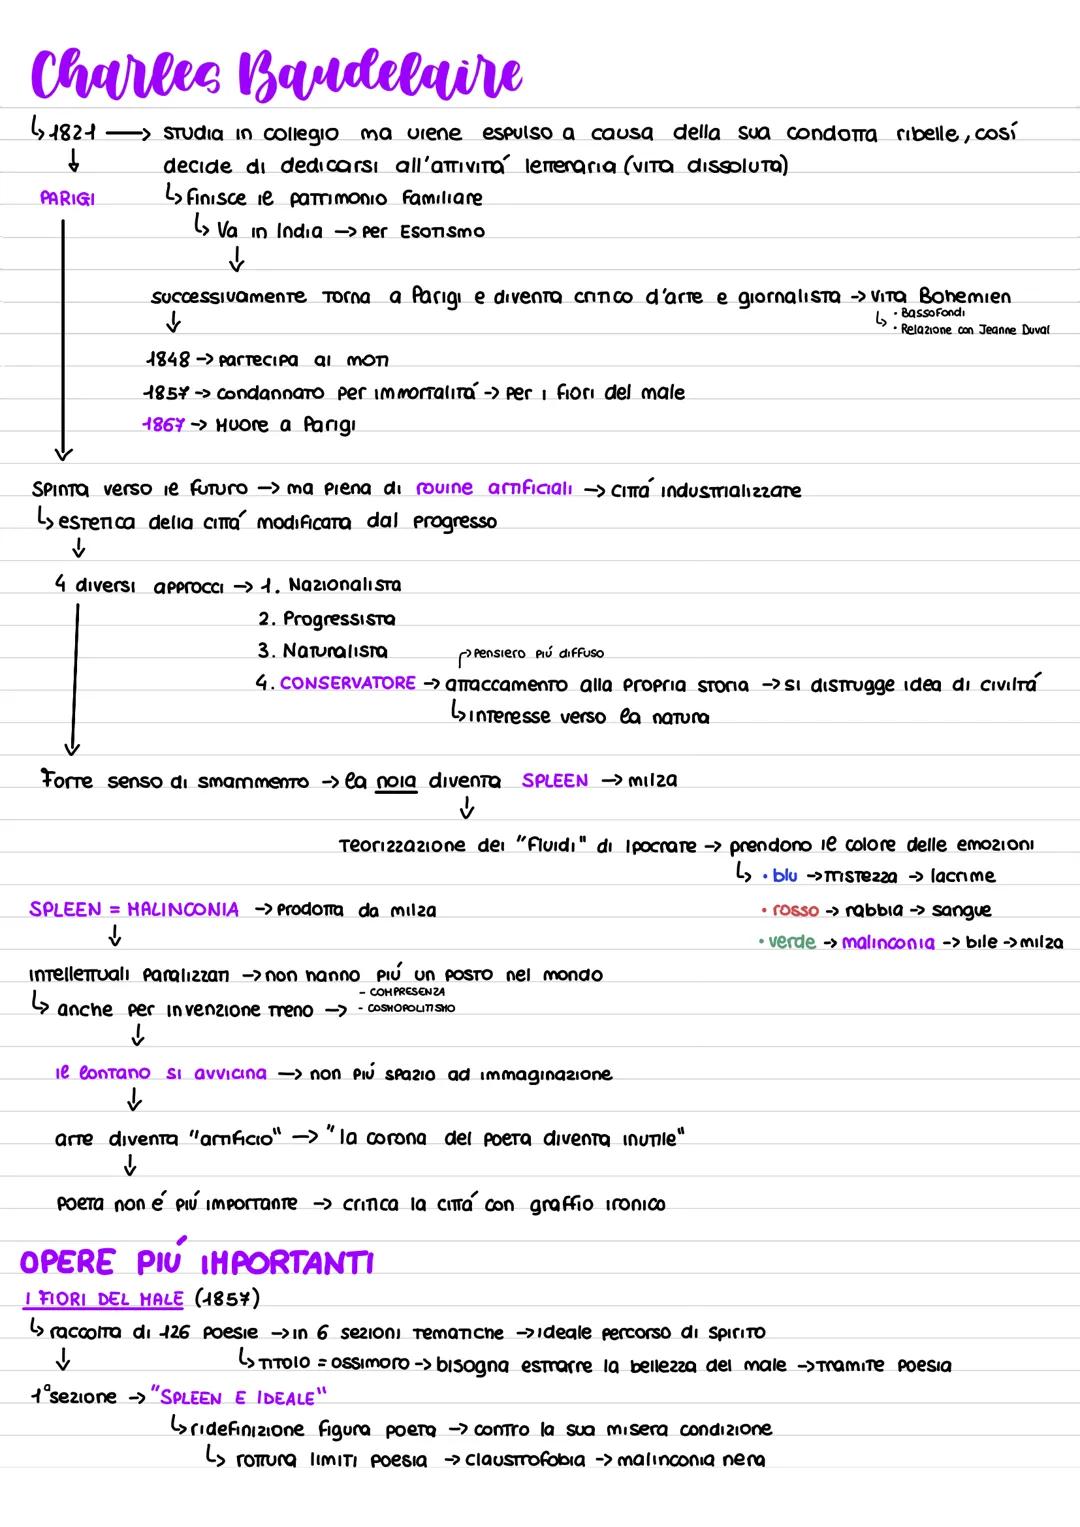 Charles Baudelaire
↳ 1821 → studia in collegio ma viene espulso a causa della sua condotta ribelle, cosí
↓ decide di dedicarsi all'attivitá letteraria (vita dissoluta)
PARIGI ↳ finisce il patrimonio familiare
↳ Va in India → per Esotismo
↓
successivamente torna a Parigi e diventa critico d'arte e giornalista → vita Bohemien
↓ ↳ • Bassofondi
• Relazione con Jeanne Duval
1848 → partecipa ai moti
1857 → condannato per immortalitá → per i fiori del male
1867 → Muore a Parigi
Spinta verso il futuro → ma piena di rovine artificiali → cittá industrializzate
↳ estetica della cittá modificata dal progresso
↓
4 diversi approcci → 1. Nazionalista
2. Progressista
3. Naturalista → pensiero piú diffuso
4. CONSERVATORE → attaccamento alla propria storia → si distrugge idea di civiltá
↳ interesse verso la natura
Forte senso di smarrimento → la noia diventa SPLEEN → milza
↓
Teorizzazione dei "Fluidi" di Ipocrate → prendono il colore delle emozioni
↳ • blu → tristezza → lacrime
SPLEEN = MALINCONIA → prodotta da milza • rosso → rabbia → sangue
↓ • verde → malinconia → bile → milza
intellettuali paralizzati → non hanno piú un posto nel mondo
↳ anche per invenzione treno → - COMPRESENZA
- COSMOPOLITISMO
↓
il lontano si avvicina → non piú spazio ad immaginazione
↓
arte diventa "artificio" → "la corona del poeta diventa inutile"
↓
poeta non é piú importante → critica la cittá con graffio ironico
OPERE PIÚ IMPORTANTI
I FIORI DEL MALE (1857)
↳ raccolta di 126 poesie → in 6 sezioni tematiche → ideale percorso di spirito
↓ ↳ titolo = ossimoro → bisogna estrarre la bellezza del male → tramite poesia
1° sezione → "SPLEEN E IDEALE"
↳ ridefinizione figura poeta → contro la sua misera condizione
↳ rottura limiti poesia → claustrofobia → malinconia nera